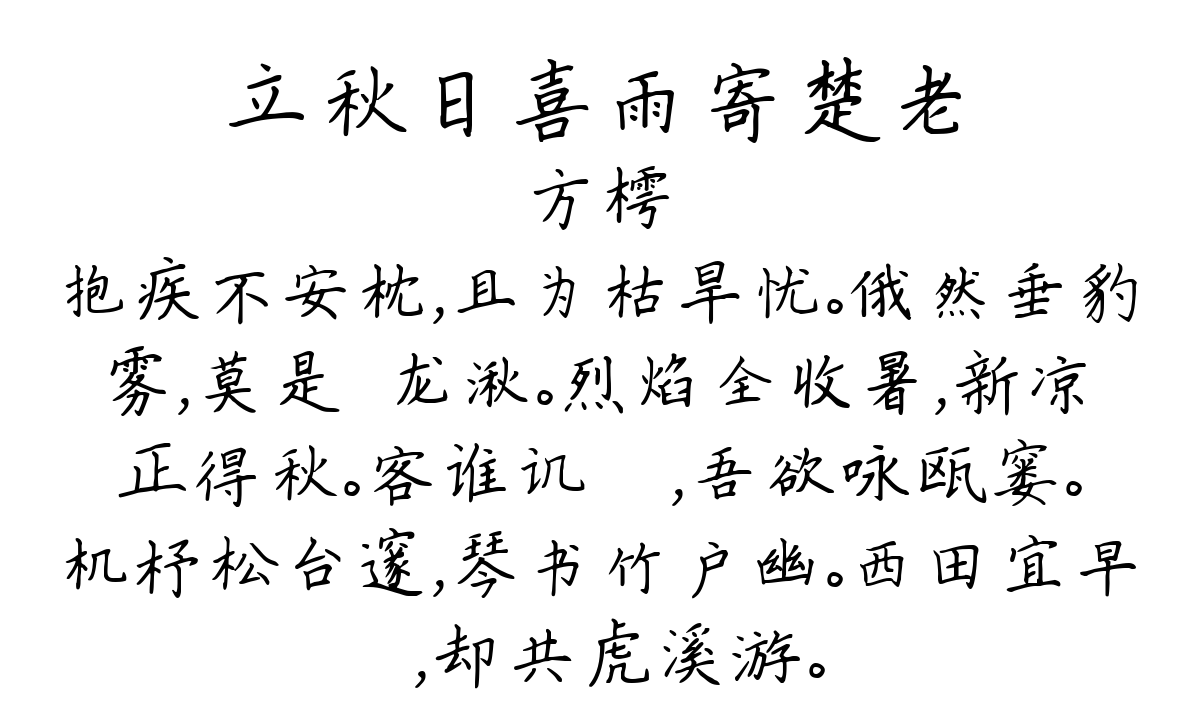 立秋日喜雨寄楚老
方樗
抱疾不安枕,且为枯旱忧。俄然垂豹
雾,莫是 龙湫。烈焰全收暑,新凉
正得秋。客谁讥 ,吾欲咏瓯窭。
机杼松台邃,琴书竹户幽。西田宜早
,却共虎溪游。